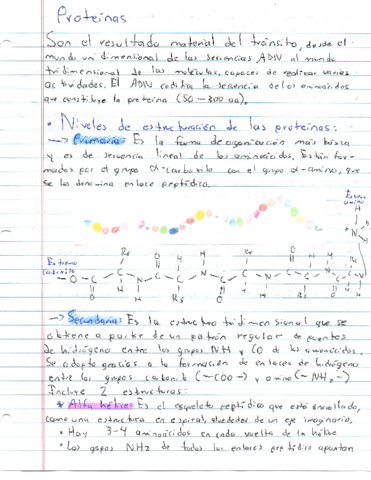 Proteínas
Son el resultado material del tránsito, desde el
mundo unidimensional de las secuencias ADN al mundo
tridimensional de las moléculas, capaces de realizar varias
actividades. El ADN codifica la secuencia de los aminoácidos
que constituye la proteína (50-300 aa).
• Niveles de estructuración de las proteínas:
→ Primaria: Es la forma de organización más básica
y es de secuencia lineal de los aminoácidos. Están for-
mados por el grupo α-carboxilo con el grupo α-amino, que
se les denomina enlace peptídico.
Extremo
amino
Extremo
carboxilo
→ Secundaria: Es la estructura tridimensional que se
obtiene a partir de un patrón regular de puentes
de hidrógeno entre los grupos NH y CO de los aminoácidos.
Se adopta gracias a la formación de enlaces de hidrógeno
entre los grupos carbonilo (-COO-) y amino (-NH₂-)
Incluye 2 estructuras:
* Alfa hélice: Es el esqueleto peptídico que está enrollado,
como una estructura en espiral, alrededor de un eje imaginario.
• Hay 3-4 aminoácidos en cada vuelta de la hélice
• Los grupos NH₂ de todos los enlaces peptídico apuntan